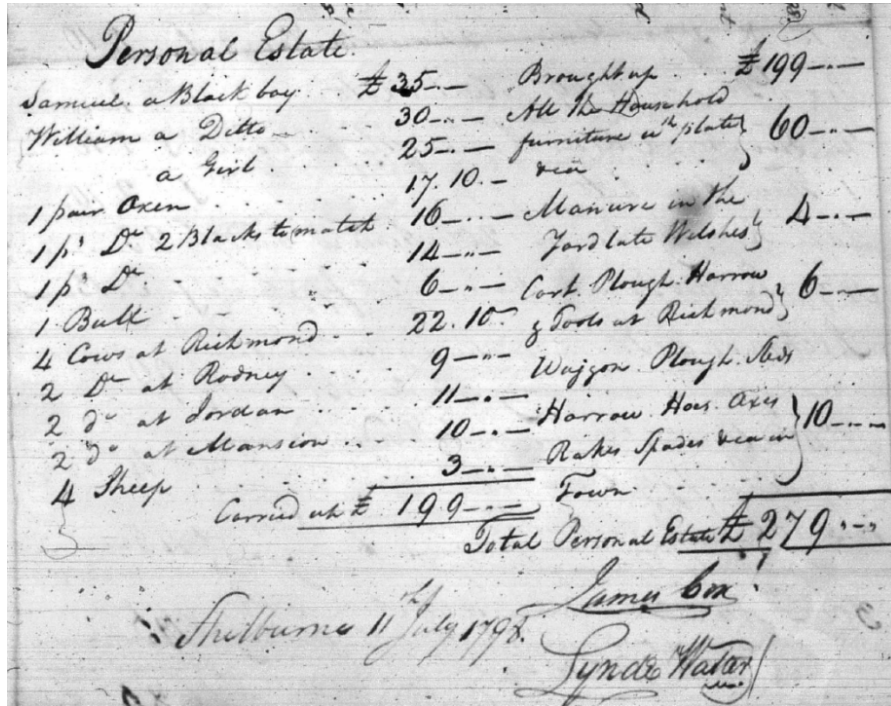 Personal Estate
Samuel a Black boy £ 35 - " -
William a Ditto 30 - " -
a Girl 25 - " -
1 pair Oxen 17. 10. -
1 pr Do 2 Blacks to match 16 - " -
1 pr Do 14 - " -
1 Bull 6 - " -
4 Cows at Richmond 22. 10 -
2 Do at Rodney 9 - " -
2 do at Jordan 11 - " -
2 do at Mansion 10 - " -
4 Sheep 3 - " -
Carried up £ 199 - " -
Brought up £ 199 - " -
All the Household
furniture wth plate } 60 - " -
&ca
Manure in the
Yard late Welshes } 4 - " -
Cart. Plough. Harrow
& Tools at Richmond } 6 - " -
Waggon. Plough. Sleds
Harrow. Hoes. Axes } 10 - " -
Rakes Spades &ca in
Town
Total Personal Estate £ 279 " - " -
James Cox
Shelburne 11th July 1798.
Lynde Walter